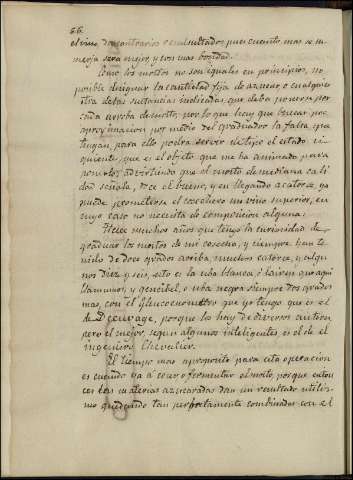 66
el vino de contrarios resultados pues cuanto mas se
meoja será mejor, y con mas bondad.
Como los mostos no son iguales en principios, no
posible designar la cantidad fija de azucar o cualquier
otra de las sustancias indicadas que deba ponerse por
cada arroba de mosto, por lo que hay que buscar por
aprocsimacion por medio del graduador la falta que
tengan, para ello podrá servir de tipo el estado si-
guiente, que es el objeto que me ha animado para
ponerlo, advirtiendo que el mosto de mediana cali
dad señala, doce el bueno, y en llegando a catorce, ya
puede prometerse el cosechero un vino superior, en
cuyo caso no necesita de composicion alguna.
Hace muchos años que tengo la curiosidad de
graduar los mostos de mi cosecha, y siempre han te
nido de doce grados arriba, muchos catorce, y algu
nos diez y seis, esto es la uba blanca, o lairen que aqui
llamamos, y gencibel, o uba negra siempre dos grados
mas, con el Glucoenometro que yo tengo que es el
de Deeuvage, porque los hay de diversos autores
pero el mejor, segun algunos inteligentes es el de el
ingeniero Chevalier.
El tiempo mas aproposito para esta operacion
es cuando va a cocer o fermentar el mosto, porque enton
ces las materias azucaradas dan un resultado utilisi-
mo quedando tan perfectamente combinadas con el